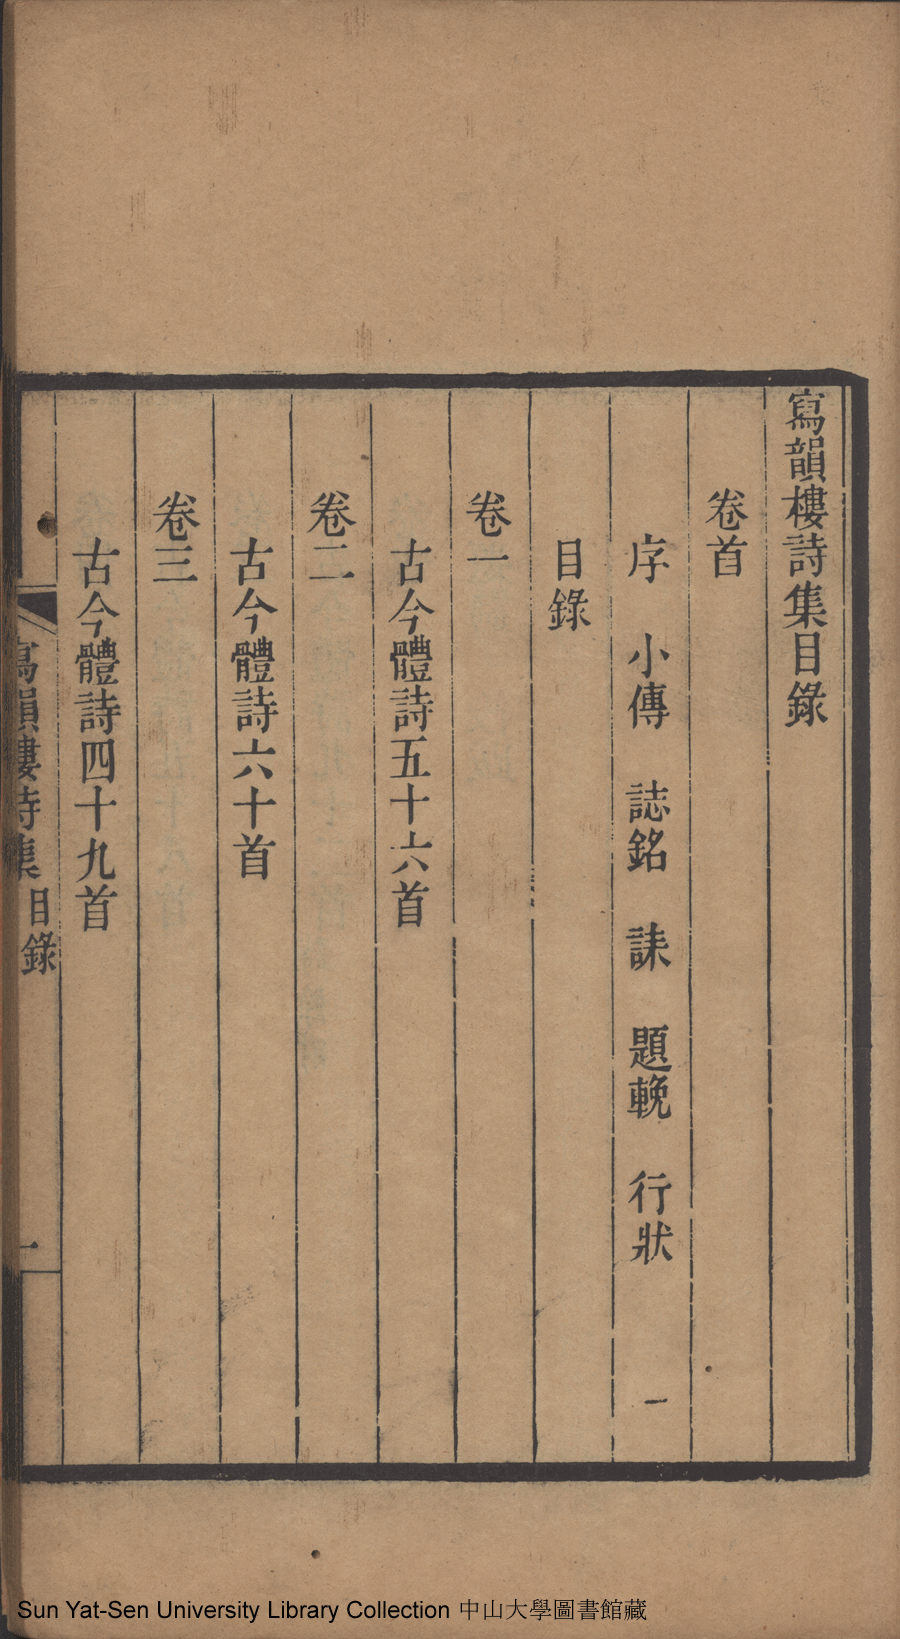 寫韻樓詩集目錄
卷首
序 小傳 誌銘 誄 題輓 行狀 一
目錄
卷一
古今體詩五十六首
卷二
古今體詩六十首
卷三
古今體詩四十九首
寫韻樓詩集 目錄 一
Sun Yat-Sen University Library Collection 中山大學圖書館藏